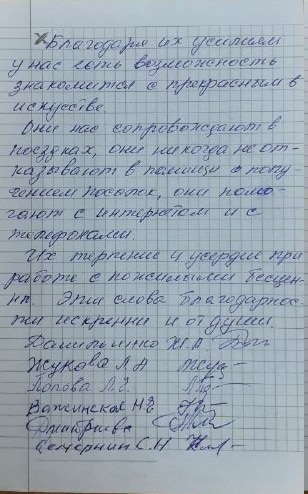 Благодаря их усилиям
у нас есть возможность
знакомится с прекрасным в
искусстве.
Они нас сопровождают в
поездках, они никогда не от-
казывают в помощи с полу-
чением посылок, они помо-
гают с интернетом и с
телефонами.
Их терпение и усердие при
работе с пожилыми бесцен-
ны. Эти слова благодарнос-
ти искренни и от души.
Жукова Л.А
Попова Л.Е.
Важинская Н.Е
Дмитриева
С.Н